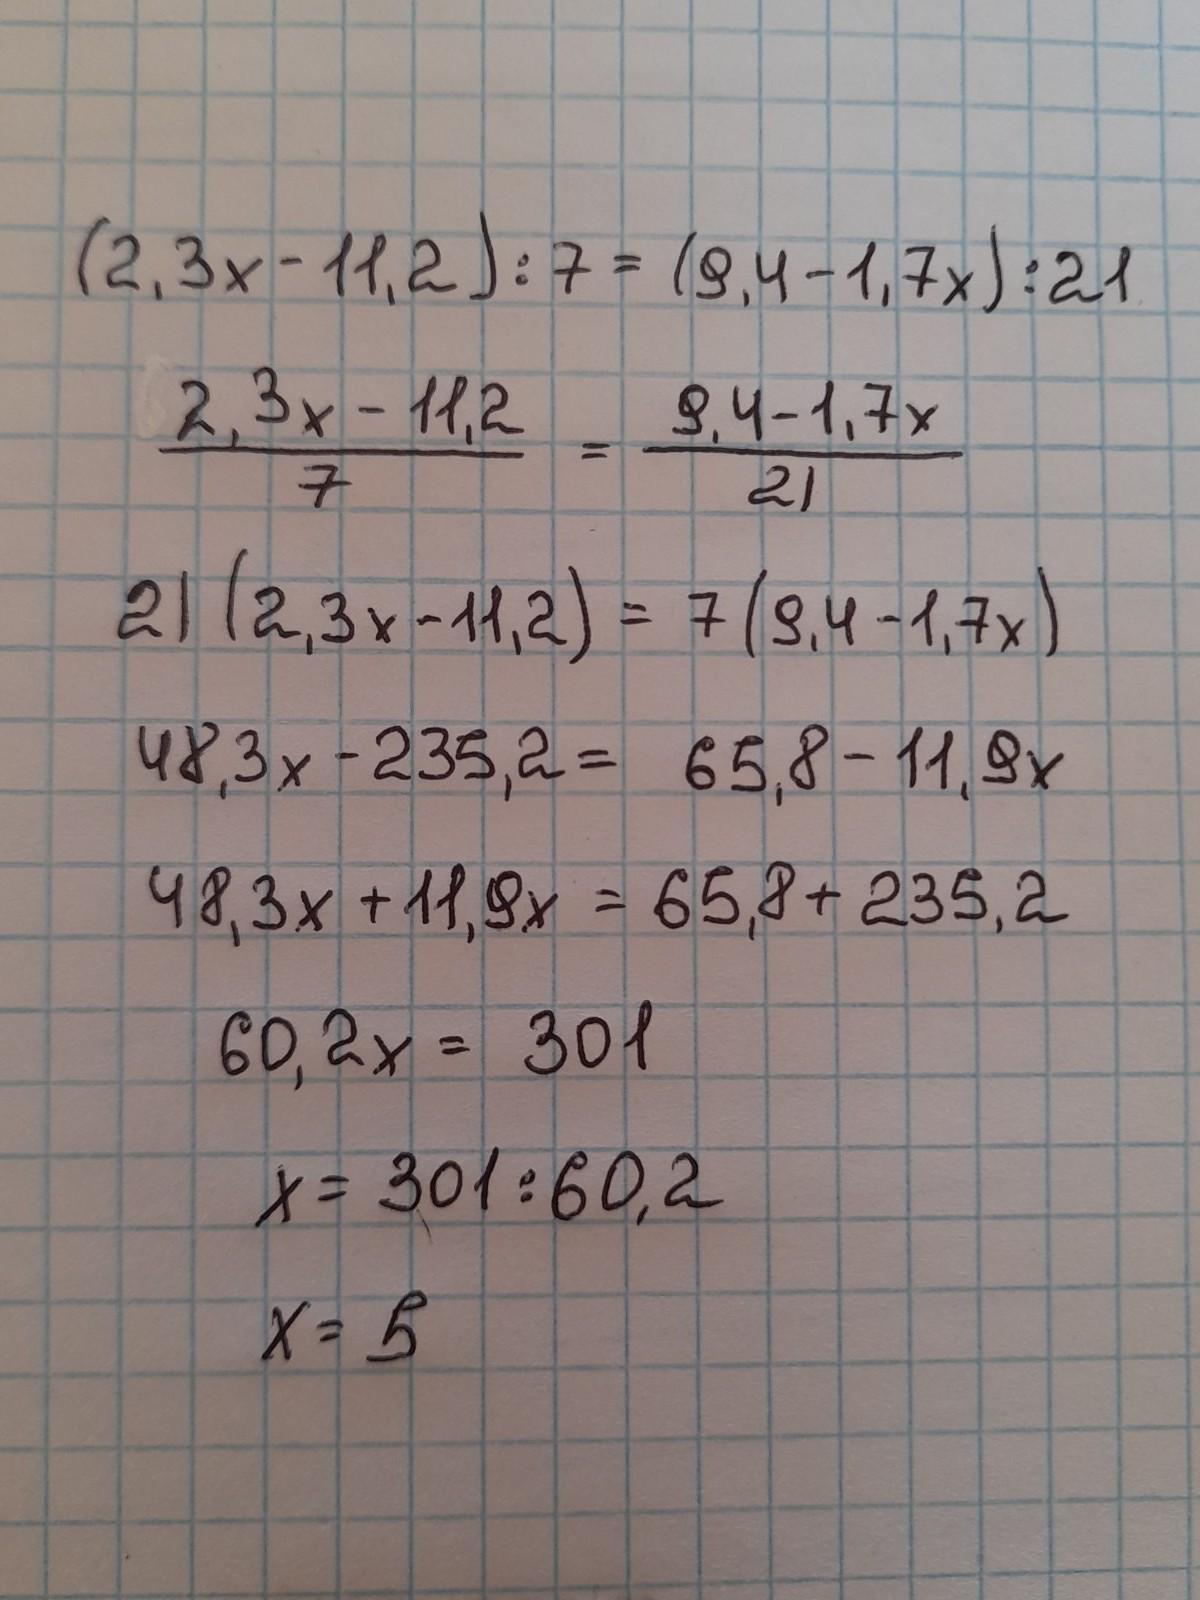 (2,3x - 11,2) : 7 = (9,4 - 1,7x) : 21
2,3x - 11,2 / 7 = 9,4 - 1,7x / 21
21 (2,3x - 11,2) = 7 (9,4 - 1,7x)
48,3x - 235,2 = 65,8 - 11,9x
48,3x + 11,9x = 65,8 + 235,2
60,2x = 301
x = 301 : 60,2
x = 5